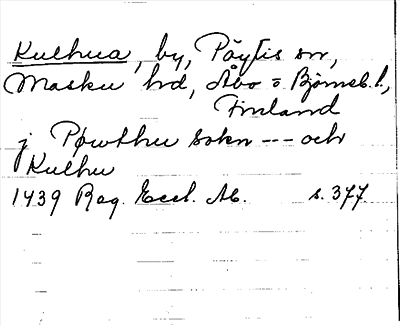 Kulhua, by, Pöytis sn,
Masku hd, Åbo o Björneb. l.,
Finland
j Pøwthu sokn --- och
Kulhu
1439 Reg. Eccl. Ab. s. 377